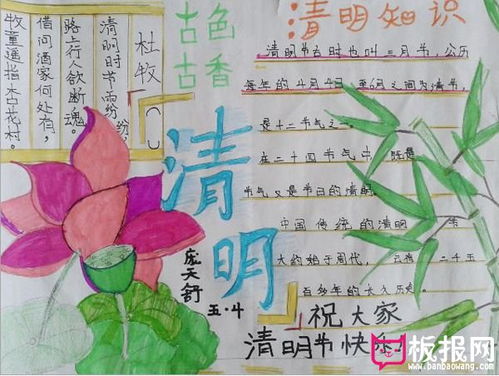 古色
古香
杜牧
清明时节雨纷纷
路上行人欲断魂。
借问酒家何处有,
牧童遥指杏花村。
清明
庞天舒
五·4
清明知识
清明节古时也叫三月节,公历
每年的4月4日至6日之间为清明节,
是十二节气之一。
在二十四节气中 既是
节气又是节日的清明
中国传统的清明
大约始于周代, 二千五
百多年的
祝大家
清明节快乐!
板报网
www.banbaowang.com